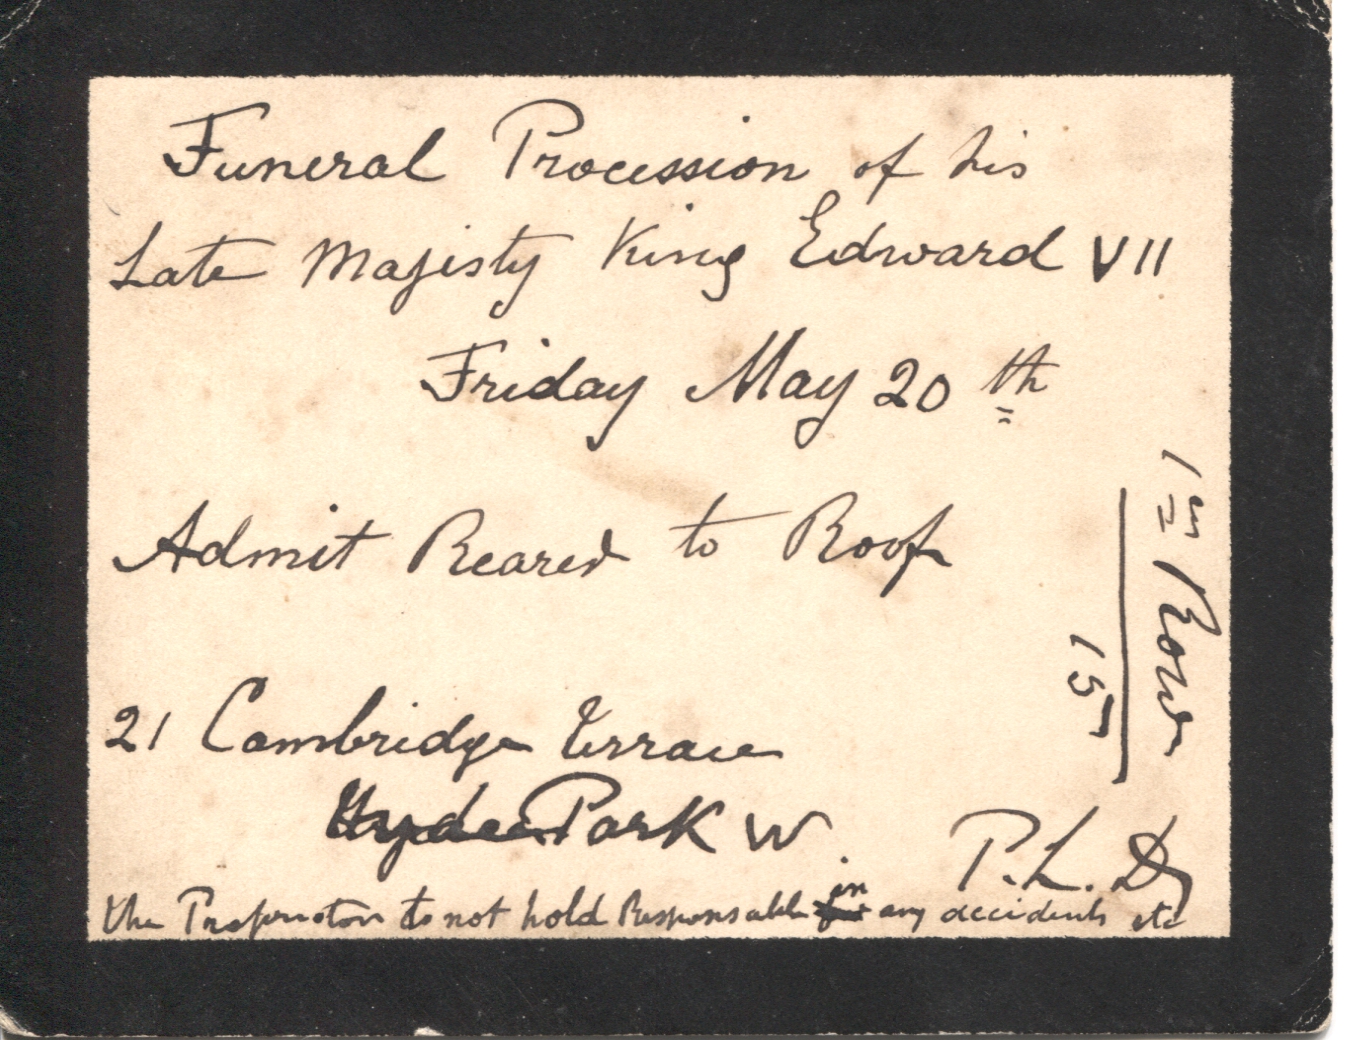 Funeral Procession of his
Late Majisty King Edward VII
Friday May 20th
Admit Bearer to Roof
21 Cambridge Terrace
Hyde Park W
P.L.
the Propriotor to not hold Responsable in any accidents etc
1st Row
15